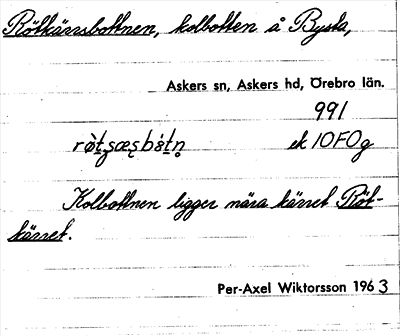 Rötkärrsbottnen, kolbotten å Bysta,
Askers sn, Askers hd, Örebro län.
991
ek 10F0g
Kolbottnen ligger nära kärret Röt-
kärret.
Per-Axel Wiktorsson 1963